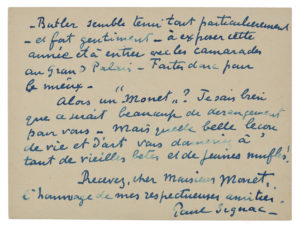 - Butler semble tenir tout particulièrement
- et fort gentiment - à exposer cette
année et à entrer avec les camarades
au Grand Palais - Faites donc pour
le mieux -
Alors un "Monet"? Je sais bien
que ce serait beaucoup de dérangement
pour vous - Mais quelle belle leçon
de vie et d'art vous donneriez à
tant de vieilles bêtes et de jeunes mufles!
Recevez, cher Monsieur Monet,
l'hommage de mes respectueuses amitiés.
Paul Signac -